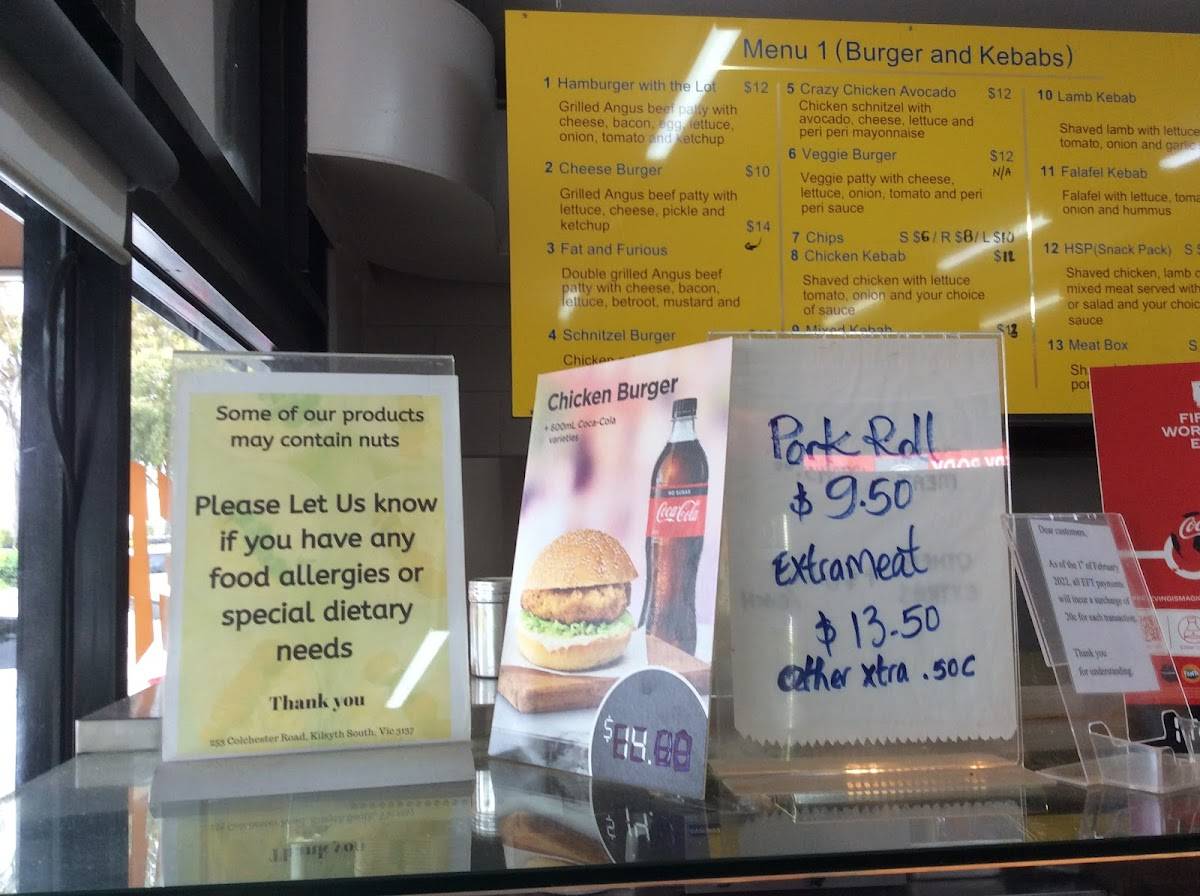 Menu 1 (Burger and Kebabs)
1 Hamburger with the Lot $12
Grilled Angus beef patty with
cheese, bacon, egg, lettuce,
onion, tomato and ketchup
2 Cheese Burger $10
Grilled Angus beef patty with
lettuce, cheese, pickle and
ketchup
3 Fat and Furious $14
Double grilled Angus beef
patty with cheese, bacon,
lettuce, betroot, mustard and
4 Schnitzel Burger
Chicken
5 Crazy Chicken Avocado $12
Chicken schnitzel with
avocado, cheese, lettuce and
peri peri mayonnaise
6 Veggie Burger $12
N/A
Veggie patty with cheese,
lettuce, onion, tomato and peri
peri sauce
7 Chips S $6/R $8/L $10
8 Chicken Kebab $12
Shaved chicken with lettuce
tomato, onion and your choice
of sauce
9 Mixed Kebab $13
10 Lamb Kebab
Shaved lamb with lettuce
tomato, onion and garlic
11 Falafel Kebab
Falafel with lettuce,
onion and hummus
12 HSP(Snack Pack) S
Shaved chicken, lamb
mixed meat served with
or salad and your
sauce
13 Meat Box S
Some of our products
may contain nuts
Please Let Us know
if you have any
food allergies or
special dietary
needs
Thank you
253 Colchester Road, Kilsyth South, Vic 3137
Chicken Burger
+ 600mL Coca-Cola
varieties
NO SUGAR
Coca-Cola
$14.00
Pork Roll
$9.50
Extra Meat
$13.50
other xtra .50c
Dear customers,
As of the 1st of February
2022, all EFT payments
will incur a surcharge of
20c for each transaction.
Thank you
for understanding.